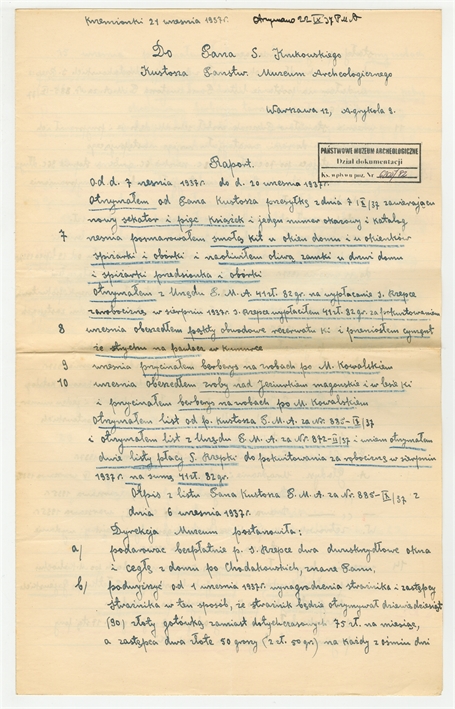 Krzemionki 21 września 1937r. Otrzymano 22 IX 37 P.M.A
Do Pana S. Krukowskiego
Kustosza Państw. Muzeum Archeologicznego
Warszawa 12, Agrykola 9.
PAŃSTWOWE MUZEUM ARCHEOLOGICZNE
Dział dokumentacji
Ks. wpływu poz. Nr
Raport.
Od d. 7 września 1937r. do d. 20 września 1937r.
Otrzymałem od Pana Kustosza przesyłkę z dnia 7 IX/37 zawierającą
nowy sekator i pięć książek i jeden numer okazowy i katalog
7 wesnia posmarowałem smołą kit u okien domu i u okienków
spiżarki i obórki i naoliwiłem oliwą zamki u drzwi domu
i spiżarki przedsionka i obórki
Otrzymałem z Urzędu P. M. A 41 zł. 82 gr. na wypłacenie J. Rzepce
za robociznę w sierpniu 1937r. J. Rzepce wypłaciłem 41 zł. 82 gr. za pokwitowaniem
8 wrzesnia obszedłem pąkty obwodowe rezerwatu ki i przeniosłem cyment
ze strychu na
9 wrzesnia przycinałem berberys na zrobach po M. Kowalskim
10 wrzesnia obszedłem zroby nad i w lesie ki
i przycinałem berberys na zrobach po M. Kowalskiem
Otrzymałem list od p. Kustosza P. M. A za Nr. 885-IX/37
i otrzymałem list z Urzędu P. M. A za Nr. 872-II/37 i w nim otrzymałem
dwie listy płacy J. Rzepki do pokwitowania za robociznę w sierpniu
1937r. na sumę 41 zł. 82gr.
Otpis z listu Pana Kustosza P. M. A. za Nr. 885-IX/37 z
dnia 6 września 1937r.
Dyrekcja Muzeum postanowiła:
a/ podarować bezpłatnie p. J. Rzepce dwa dwuskrzydłowe okna
i cegłę z domu po Chodakowskich, znane Panu.
b/ podwyższyć od 1 września 1937r. wynagrodzenia strażnika i zastępcy
strażnika w ten sposób, że strażnik będzie otrzymywał dziewiedziesiąt
(90) złoty gotówką zamiast dotychczasowych 75 zł. na miesiąc,
a zastępca dwa złote 50 groszy (2 zł. 50 gr) na każdy z ośmiu dni